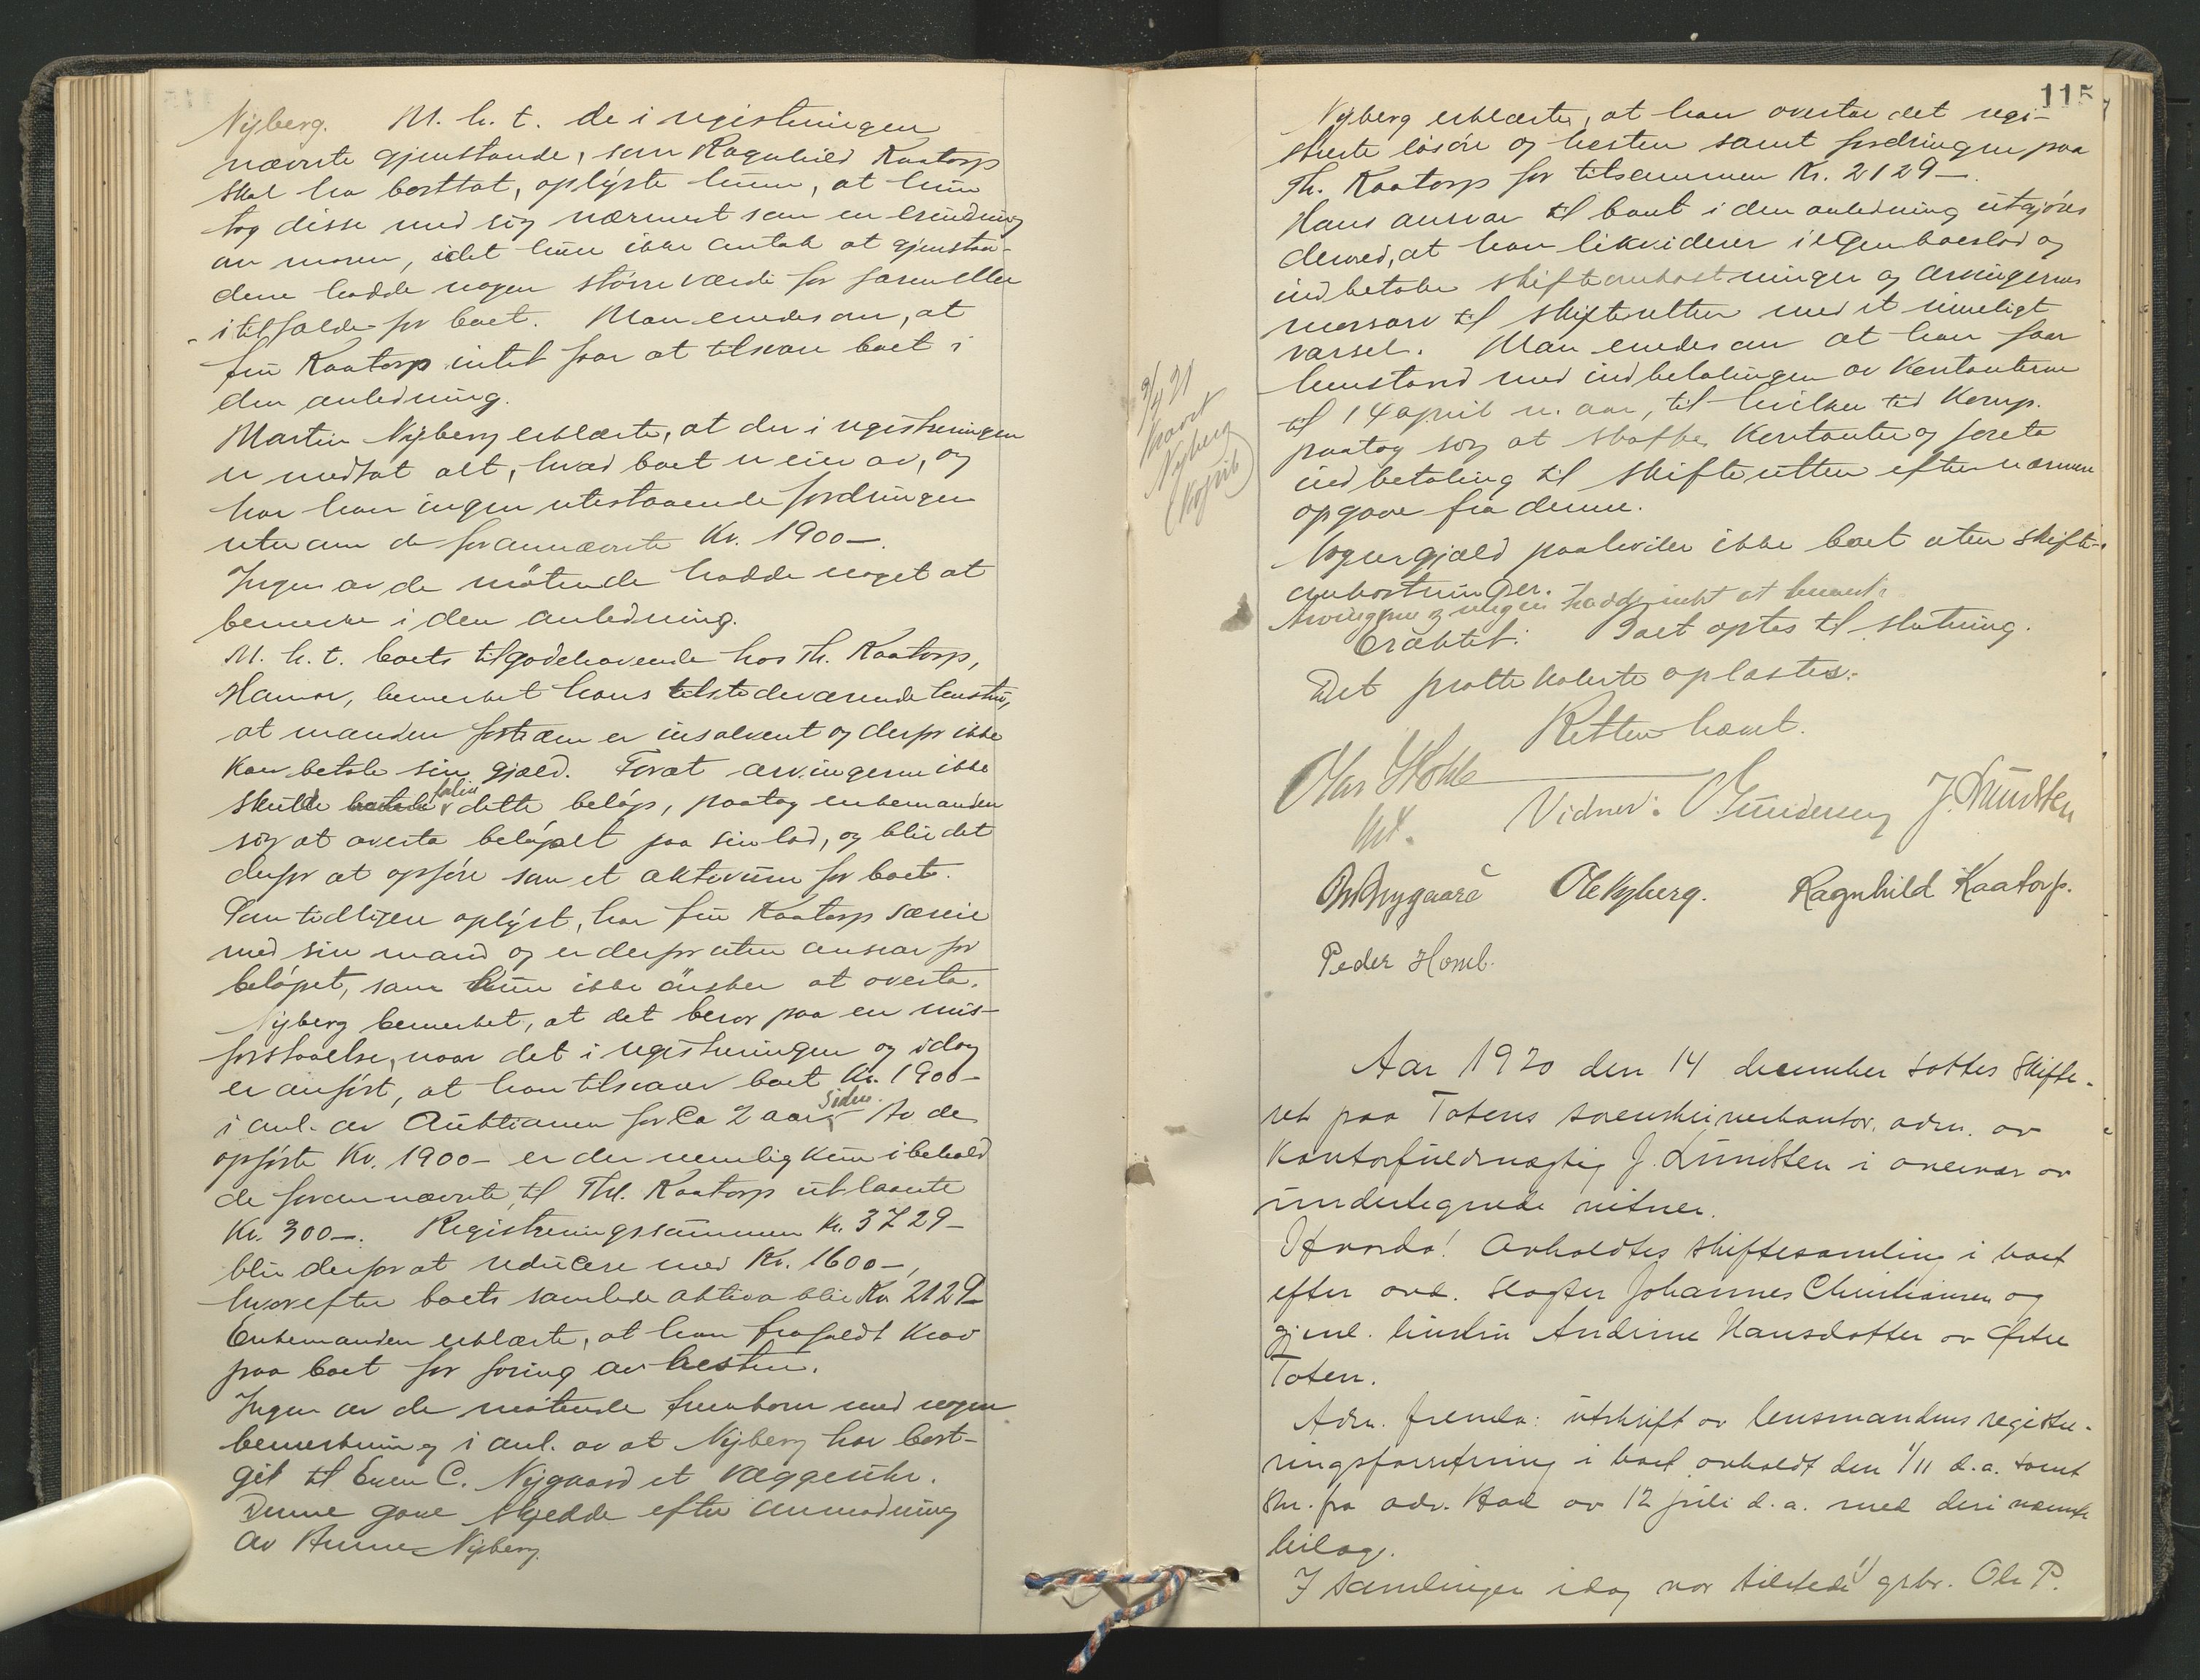 Nyberg. M. h. t. de i registreringen
nævnte gjenstande, som Ragnhild Kaatorp
skal ha borttat, oplyste hun, at hun
tog disse med sig nærmest som en erindring
av moren, idet hun ikke antok at gjenstan-
dene hadde nogen större værdi for faren eller
i tilfælde for boet. Man enedes om, at
fru Kaatorp intet faar at tilsvare boet i
den anledning.
Martin Nyberg erklærte, at der i registreringen
er medtat alt, hvad boet er eier av, og
har han ingen utestaaende fordringer
utenom de forannævnte Kr. 1900 —.
Ingen av de mötende hadde noget at
bemerke i den anledning.
M. h. t. boets tilgodehavende hos Th. Kaatorp,
Hamar, bemerket hans tilstedeværende hustru,
at manden fortiden er insolvent og derfor ikke
kan betale sin gjæld. Forat arvingerne ikke
skulde dette beløp, paatog enkemanden
sig at overta beløpet paa sin lod, og blir det
derfor at opføre som et aktivum for boet.
Som tidligere oplyst, har fru Kaatorp særeie
med sin mand og er derfor uten ansvar for
beløpet, som hun ikke ønsker at overta.
Nyberg bemerket, at det beror paa en mis-
forstaaelse, naar det i registreringen og idag
er anført, at han tilsvarer boet Kr. 1900 –
i anl. av Auktionen for ca 2 aar siden. Av de
opførte Kr. 1900 – er der nemlig kun i behold
de forannævnte, til Th. Kaatorp utlaante
Kr. 300 —. Registreringssummen Kr. 3729 –
blir derfor at reducere med Kr. 1600 –,
hvorefter boets samlede aktiva blir Kr. 2129 –
Enkemanden erklærte, at han frafaldt krav
paa boet for foring av hesten.
Ingen av de mötende fremkom med nogen
bemerkning i anl. av at Nyberg har bort-
git til Even C. Nygaard et væggeuhr.
Denne gave skjedde efter anmodning
av Anne Nyberg.
115
Nyberg erklærte, at han overtar det regi-
strerte løsøre og hesten samt fordringen paa
Th. Kaatorp for tilsammen Kr. 2129 —.
Hans ansvar til boet i den anledning utgjøres
derved, at han likviderer i egen boeslod og
indbetaler skifteomkostninger og arvingernes
morsarv til skifteretten med et rimeligt
varsel. Man enedes om at han faar
henstand med indbetalingen av kontanterne
til 14 april n. aar, til hvilken tid Komp.
paatog sig at skaffe kontanter og foreta
indbetaling til skifteretten efter nærmere
opgave fra denne.
Nogen gjæld paahviler ikke boet uten skifte-
omkostninger.
Arvingene og vergen hadde intet at bemerke
Eraktet: Boet optas til slutning.
Det protokolerte oplæstes.
Retten hævet.
Vidner: Gundersen J. Lundsten
Nygaard Ole Nyberg. Ragnhild Kaatorp.
Peder Homb.
Aar 1920 den 14 december sattes skifte-
ret paa Totens sorenskriverkontor, adm. av
kontorfuldmægtig J. Lundsten i overvær av
undertegnede vitner.
Hvorda! Avholdtes skiftesamling i boet
efter avd. slagter Johannes Christiansen og
gjenl. hustru Andrine Hansdatter av Østre
Toten.
Adm. fremla: utskrift av lensmandens registre-
ringsforretning i boet avholdt den 1/11 d. a. samt
skr. fra adv. av 12 juli d. a. med deri nævnte
bilag.
I samlingen idag var tilstede 1) grbr. Ole P.